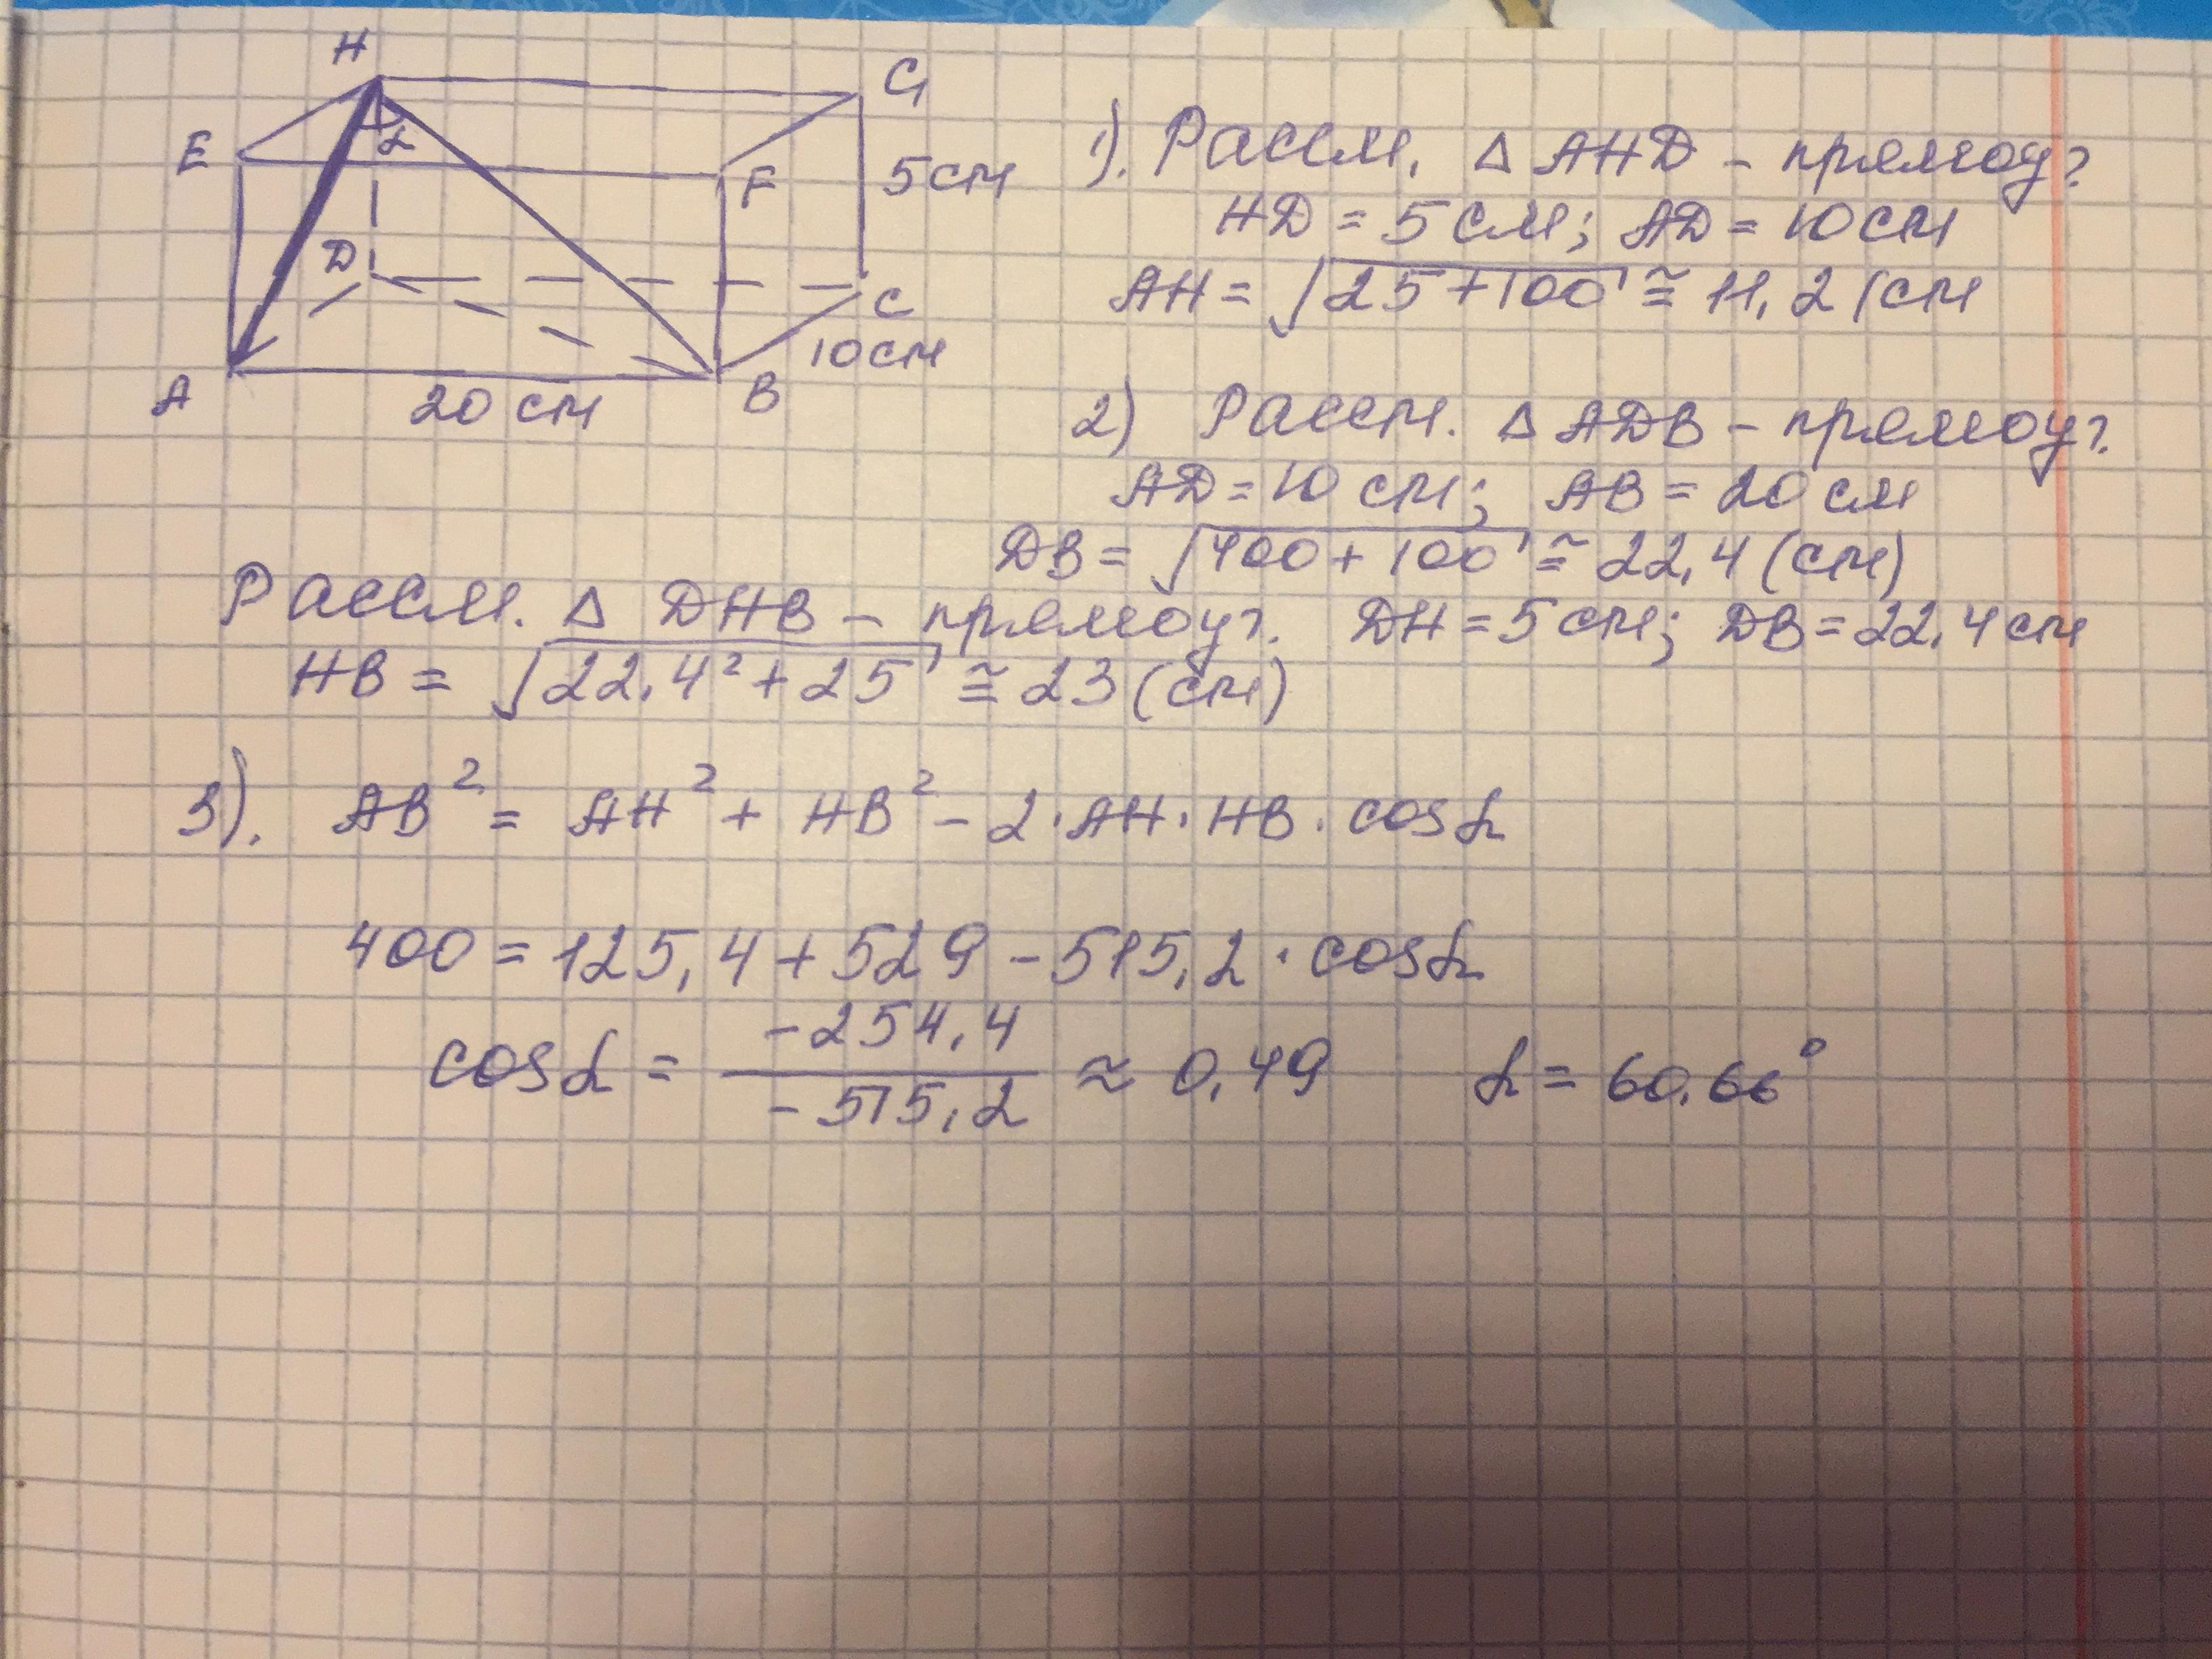 H
G
E
α
F
5 см
D
C
10 см
A
20 см
B
1). Рассм. Δ AHD – прямоуг
HD = 5 см; AD = 10 см
AH = √25+100 ≅ 11,2 (см
2) Рассм. Δ ADB – прямоуг.
AD = 10 см; AB = 20 см
DB = √400+100 ≅ 22,4 (см)
Рассм. Δ DHB – прямоуг. DH = 5 см; DB = 22,4 см
HB = √22,4² + 25 ≅ 23 (см)
3). AB² = AH² + HB² – 2·AH·HB·cos α
400 = 125,4 + 529 – 515,2 · cos α
cos α = -254,4 / -515,2 ≈ 0,49 α = 60,66°